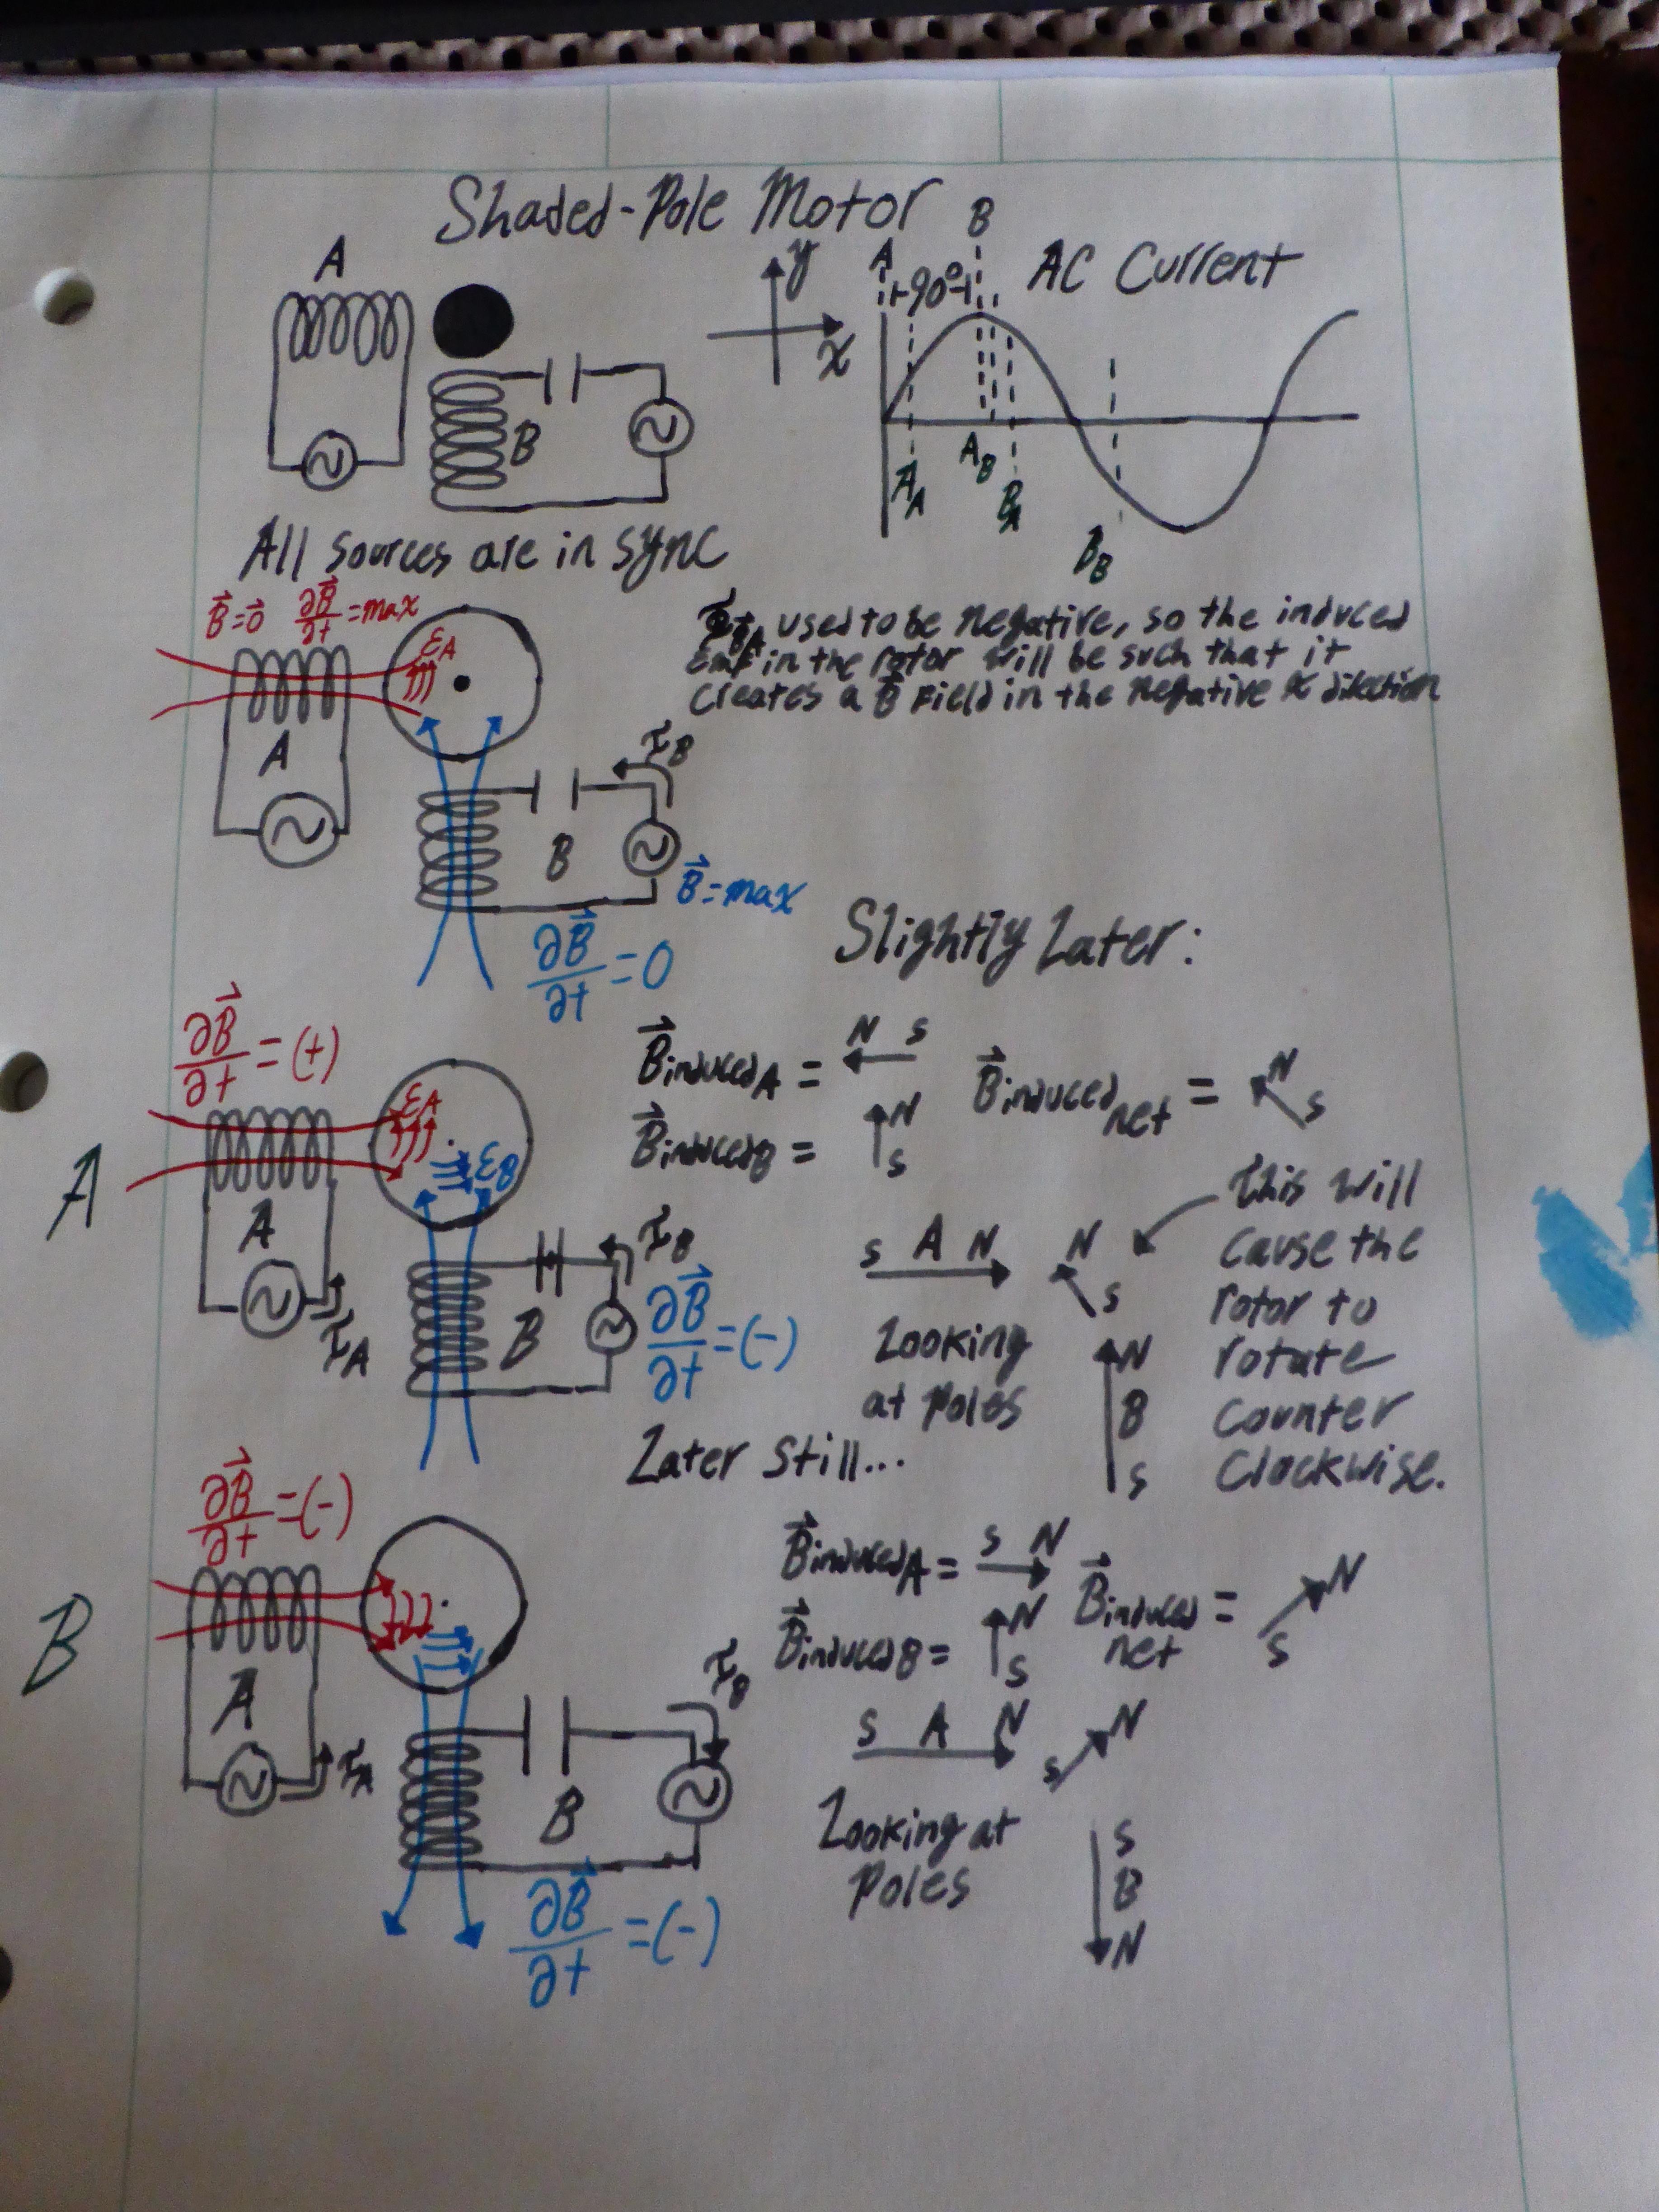 Shaded-Pole Motor
A
y
x
A
B
90°
AC Current
B
A_A
A_B
B_A
B_B
All sources are in sync
B⃗=0⃗ ∂B⃗/∂t=max
ε_A
used to be negative, so the induced
Emf in the rotor will be such that it
creates a B⃗ Field in the negative x direction
A
I_B
B
B⃗=max
∂B⃗/∂t=0
Slightly Later:
A
∂B⃗/∂t=(+)
ε_A
ε_B
A
I_A
I_B
B
∂B⃗/∂t=(-)
B⃗inducedA = N S
B⃗inducedB = N S
B⃗induced net = N S
S A N
N S
N B S
Looking
at Poles
This will
cause the
rotor to
rotate
counter
clockwise.
Later Still...
B
∂B⃗/∂t=(-)
A
I_A
I_B
B
∂B⃗/∂t=(-)
B⃗inducedA = S N
B⃗inducedB = N S
B⃗induced net = S N
S A N
S N
S B N
Looking at
Poles